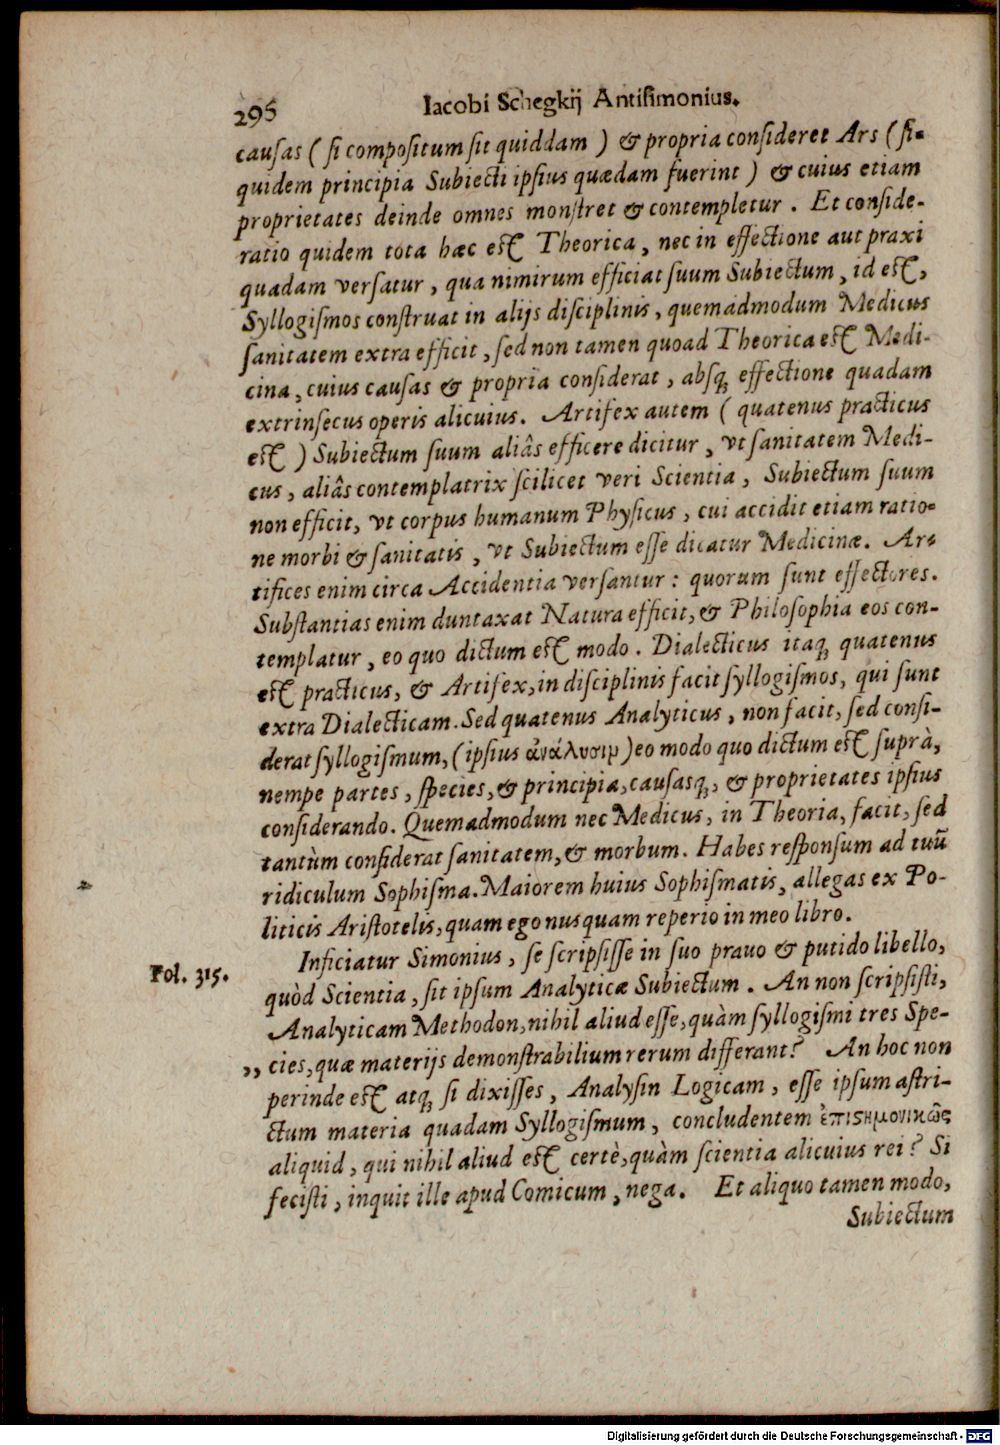 296 Iacobi Schegkij Antisimonius.
causas ( si compositum sit quiddam ) & propria consideret Ars ( si-
quidem principia Subiecti ipsius quædam fuerint ) & cuius etiam
proprietates deinde omnes monstret & contempletur . Et conside-
ratio quidem tota hæc est Theorica , nec in effectione aut praxi
quadam versatur , qua nimirum efficiat suum Subiectum , id est,
Syllogismos construat in alijs disciplinis , quemadmodum Medicus
sanitatem extra efficit , sed non tamen quoad Theorica est Medi-
cina , cuius causas & propria considerat , absq; effectione quadam
extrinsecus operis alicuius. Artifex autem ( quatenus practicus
est ) Subiectum suum aliâs efficere dicitur , vt sanitatem Medi-
cus , aliâs contemplatrix scilicet veri Scientia , Subiectum suum
non efficit, vt corpus humanum Physicus , cui accidit etiam ratio-
ne morbi & sanitatis , vt Subiectum esse dicatur Medicinæ. Ar-
tifices enim circa Accidentia versantur : quorum sunt effectores.
Substantias enim duntaxat Natura efficit, & Philosophia eos con-
templatur , eo quo dictum est modo . Dialecticus itaq; quatenus
est practicus, & Artifex, in disciplinis facit syllogismos, qui sunt
extra Dialecticam. Sed quatenus Analyticus , non facit, sed consi-
derat syllogismum, (ipsius ἀνάλυσιμ) eo modo quo dictum est suprà,
nempe partes , species, & principia, causasq;, & proprietates ipsius
considerando. Quemadmodum nec Medicus, in Theoria, facit, sed
tantùm considerat sanitatem, & morbum. Habes responsum ad tuũ
ridiculum Sophisma. Maiorem huius Sophismatis, allegas ex Po-
liticis Aristotelis, quam ego nusquam reperio in meo libro.
Fol. 315. Inficiatur Simonius, se scripsisse in suo prauo & putido libello,
quòd Scientia , sit ipsum Analyticæ Subiectum . An non scripsisti,
Analyticam Methodon, nihil aliud esse, quàm syllogismi tres Spe-
,, cies, quæ materijs demonstrabilium rerum differant? An hoc non
perinde est atq; si dixisses, Analysin Logicam, esse ipsum astri-
ctum materia quadam Syllogismum, concludentem ἐπιστημονικῶς
aliquid, qui nihil aliud est certè, quàm scientia alicuius rei? Si
fecisti, inquit ille apud Comicum, nega. Et aliquo tamen modo,
Subiectum
Digitalisierung gefördert durch die Deutsche Forschungsgemeinschaft - DFG